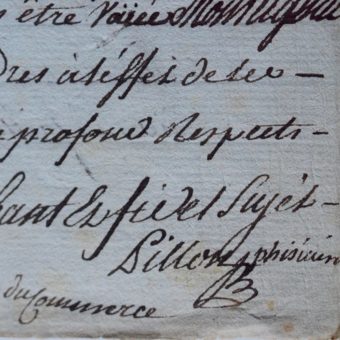 être
dres à l'éffet de se —
profond Respects —
sant Et fidel Sujét —
Dillon phisicien
du Commerce